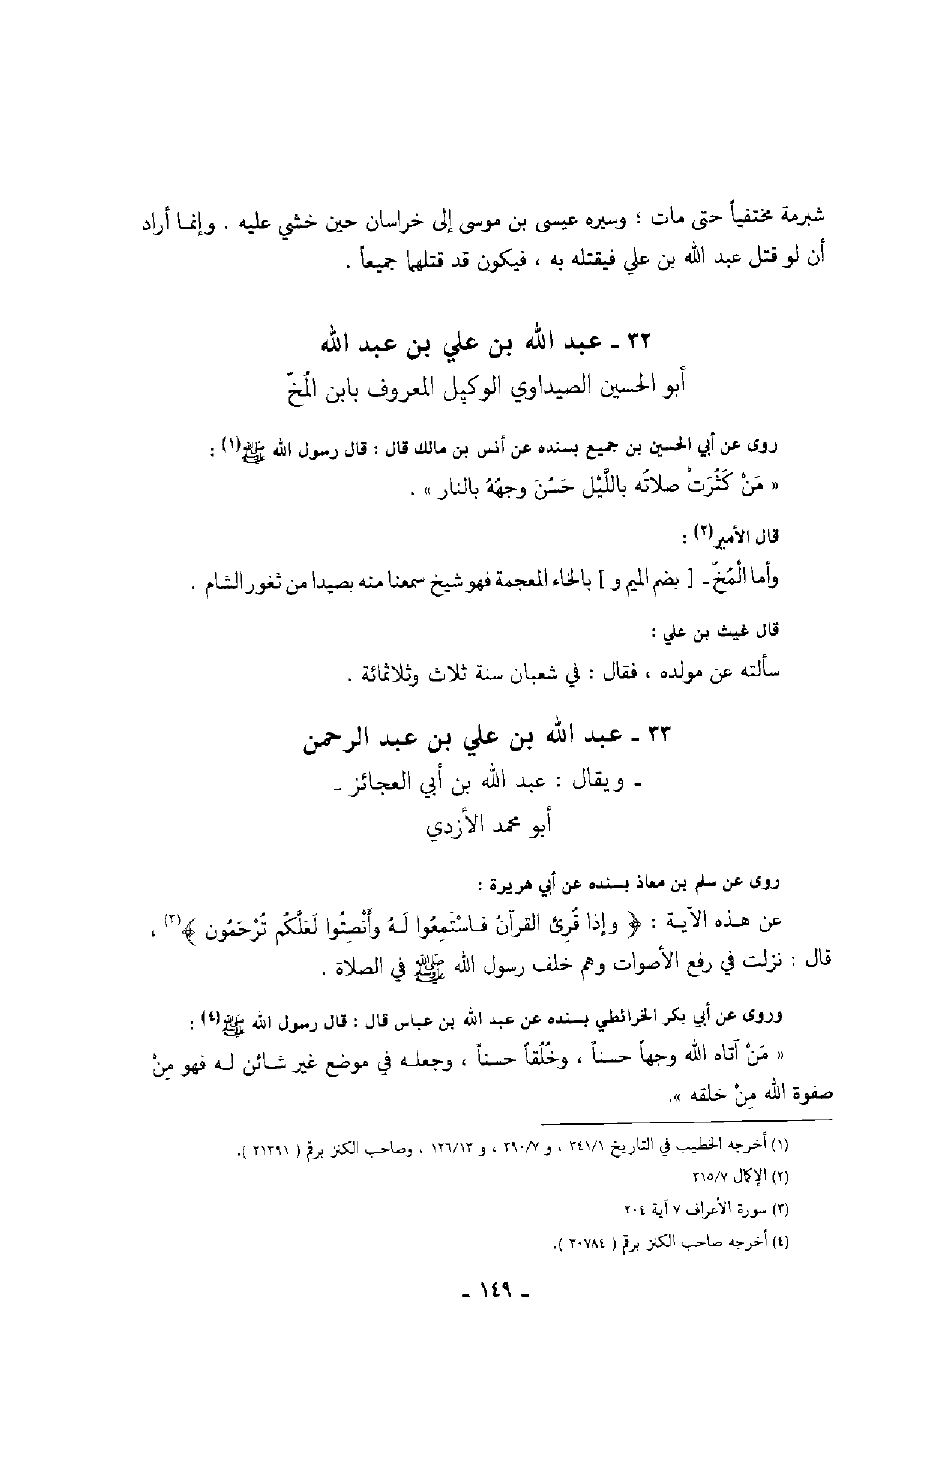 شبرمة مختفياً حتى مات ؛ وسيره عيسى بن موسى إلى خراسان حين خشي عليه . وإنما أراد
أن لو قتل عبد الله بن علي فيقتله به ، فيكون قد قتلهما جميعاً .
٣٢ ـ عبد الله بن علي بن عبد الله
أبو الحسين الصيداوي الوكيل المعروف بابن المُخّ
روى عن أبي الحسين بن جميع بسنده عن أنس بن مالك قال : قال رسول الله ﷺ(١) :
« مَنْ كَثُرَتْ صلاتُه باللَّيْل حَسُنَ وجههُ بالنار » .
قال الأمير(٢) :
وأما الْمُخّ ـ [ بضم الميم و ] بالخاء المعجمة فهو شيخ سمعنا منه بصيدا من ثغور الشام .
قال غيث بن علي :
سألته عن مولده ، فقال : في شعبان سنة ثلاث وثلاثمائة .
٣٣ ـ عبد الله بن علي بن عبد الرحمن
ـ ويقال : عبد الله بن أبي العجائز ـ
أبو محمد الأزدي
روى عن سلم بن معاذ بسنده عن أبي هريرة :
عن هذه الآية : ﴿ وإذا قُرِئ القرآنُ فاسْتمِعُوا لهُ وأَنْصِتُوا لَعَلَّكُم تُرْحَمُون ﴾(٣) ،
قال : نزلت في رفع الأصوات وهم خلف رسول الله ﷺ في الصلاة .
وروى عن أبي بكر الخرائطي بسنده عن عبد الله بن عباس قال : قال رسول الله ﷺ(٤) :
« مَنْ آتاه الله وجهاً حسناً ، وخُلُقاً حسناً ، وجعله في موضع غير شائن له فهو مِنْ
صفوة الله مِنْ خلقه ».
(١) أخرجه الخطيب في التاريخ ٣٤١/١ ، و ٣٩٠/٧ ، و ١٢٦/١٣ ، وصاحب الكنز برقم ( ٢١٣٩١ ).
(٢) الإكمال ٢١٥/٧
(٣) سورة الأعراف ٧ آية ٢٠٤
(٤) أخرجه صاحب الكنز برقم ( ٢٠٧٨٤ ).
ـ ١٤٩ ـ